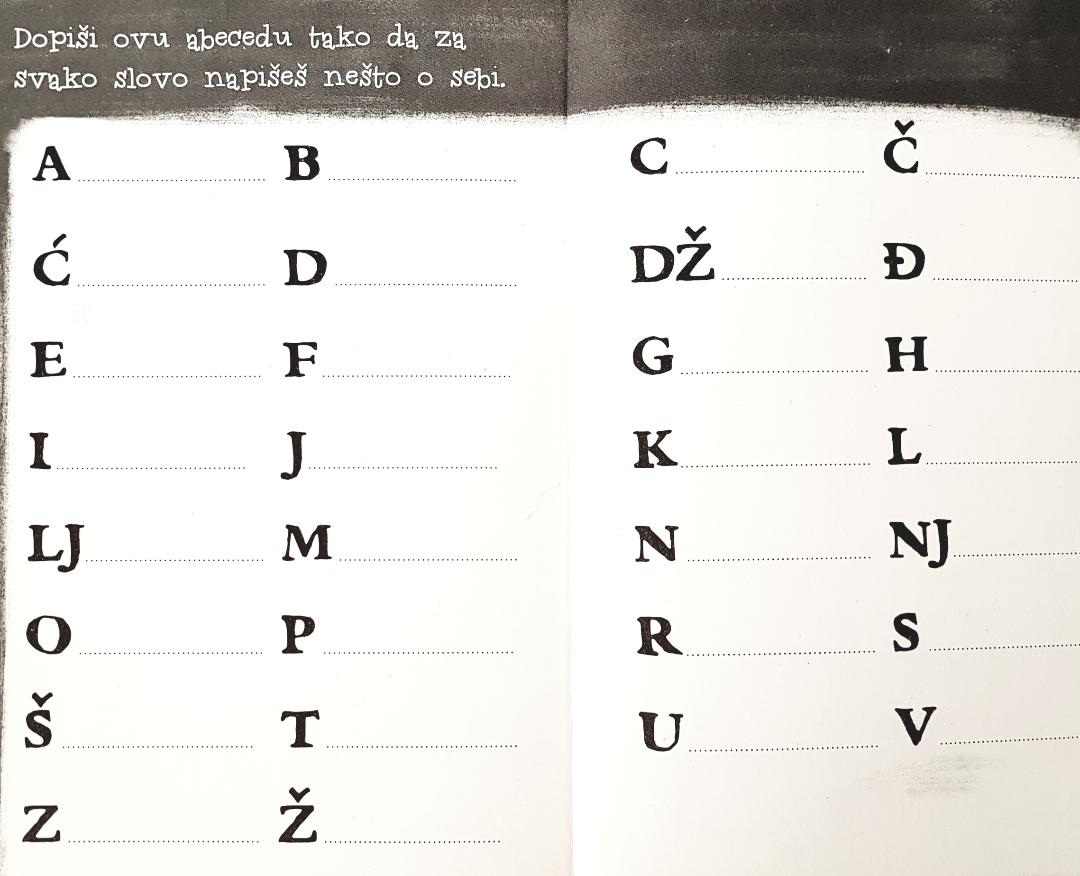 Dopiši ovu abecedu tako da za
svako slovo napišeš nešto o sebi.
A B C Č
Ć D DŽ Đ
E F G H
I J K L
LJ M N NJ
O P R S
Š T U V
Z Ž